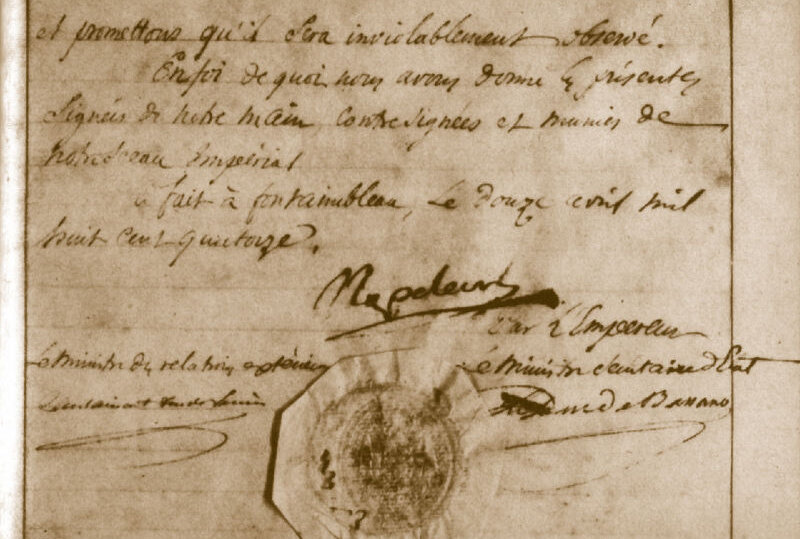 et promettons qu'il sera inviolablement observé.
En foi de quoi nous avons donné les présentes
signées de notre main, contresignées et munies de
notre sceau impérial
fait à fontainebleau, Le douze avril mil
huit cent quatorze.
Napoleon
Par L'Empereur
Le Ministre des relations extérieures
Le Ministre Secrétaire d'Etat
Duc de Bassano